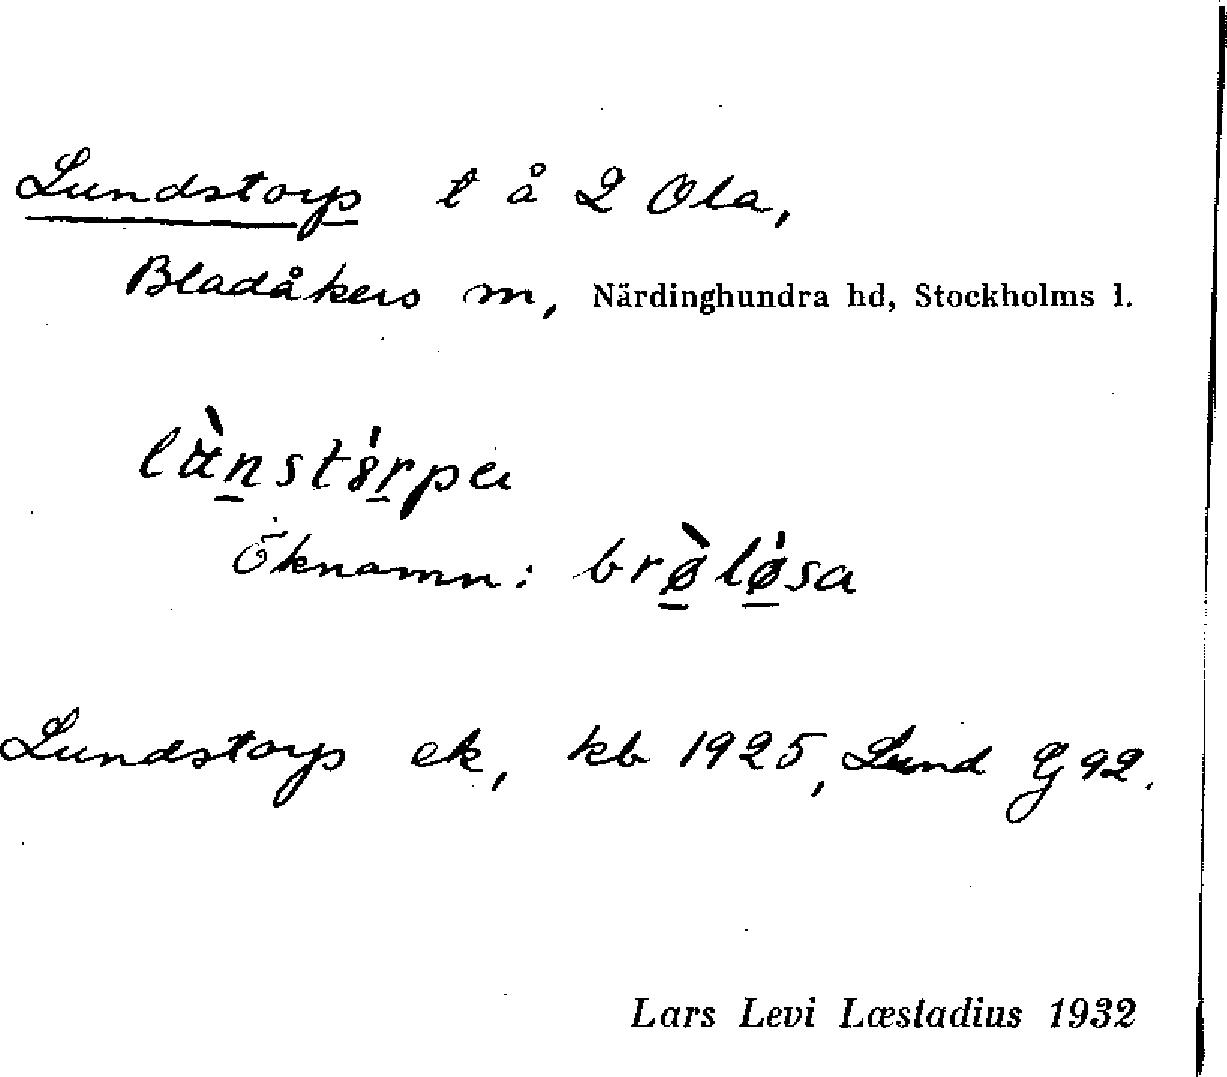 Lundstorp t å 2 Ola,
Bladåkers sn, Närdinghundra hd, Stockholms l.
Öknamn: brø̀lø̍sa
Lundstorp ek, kb 1925, Lund G 92.
Lars Levi Læstadius 1932